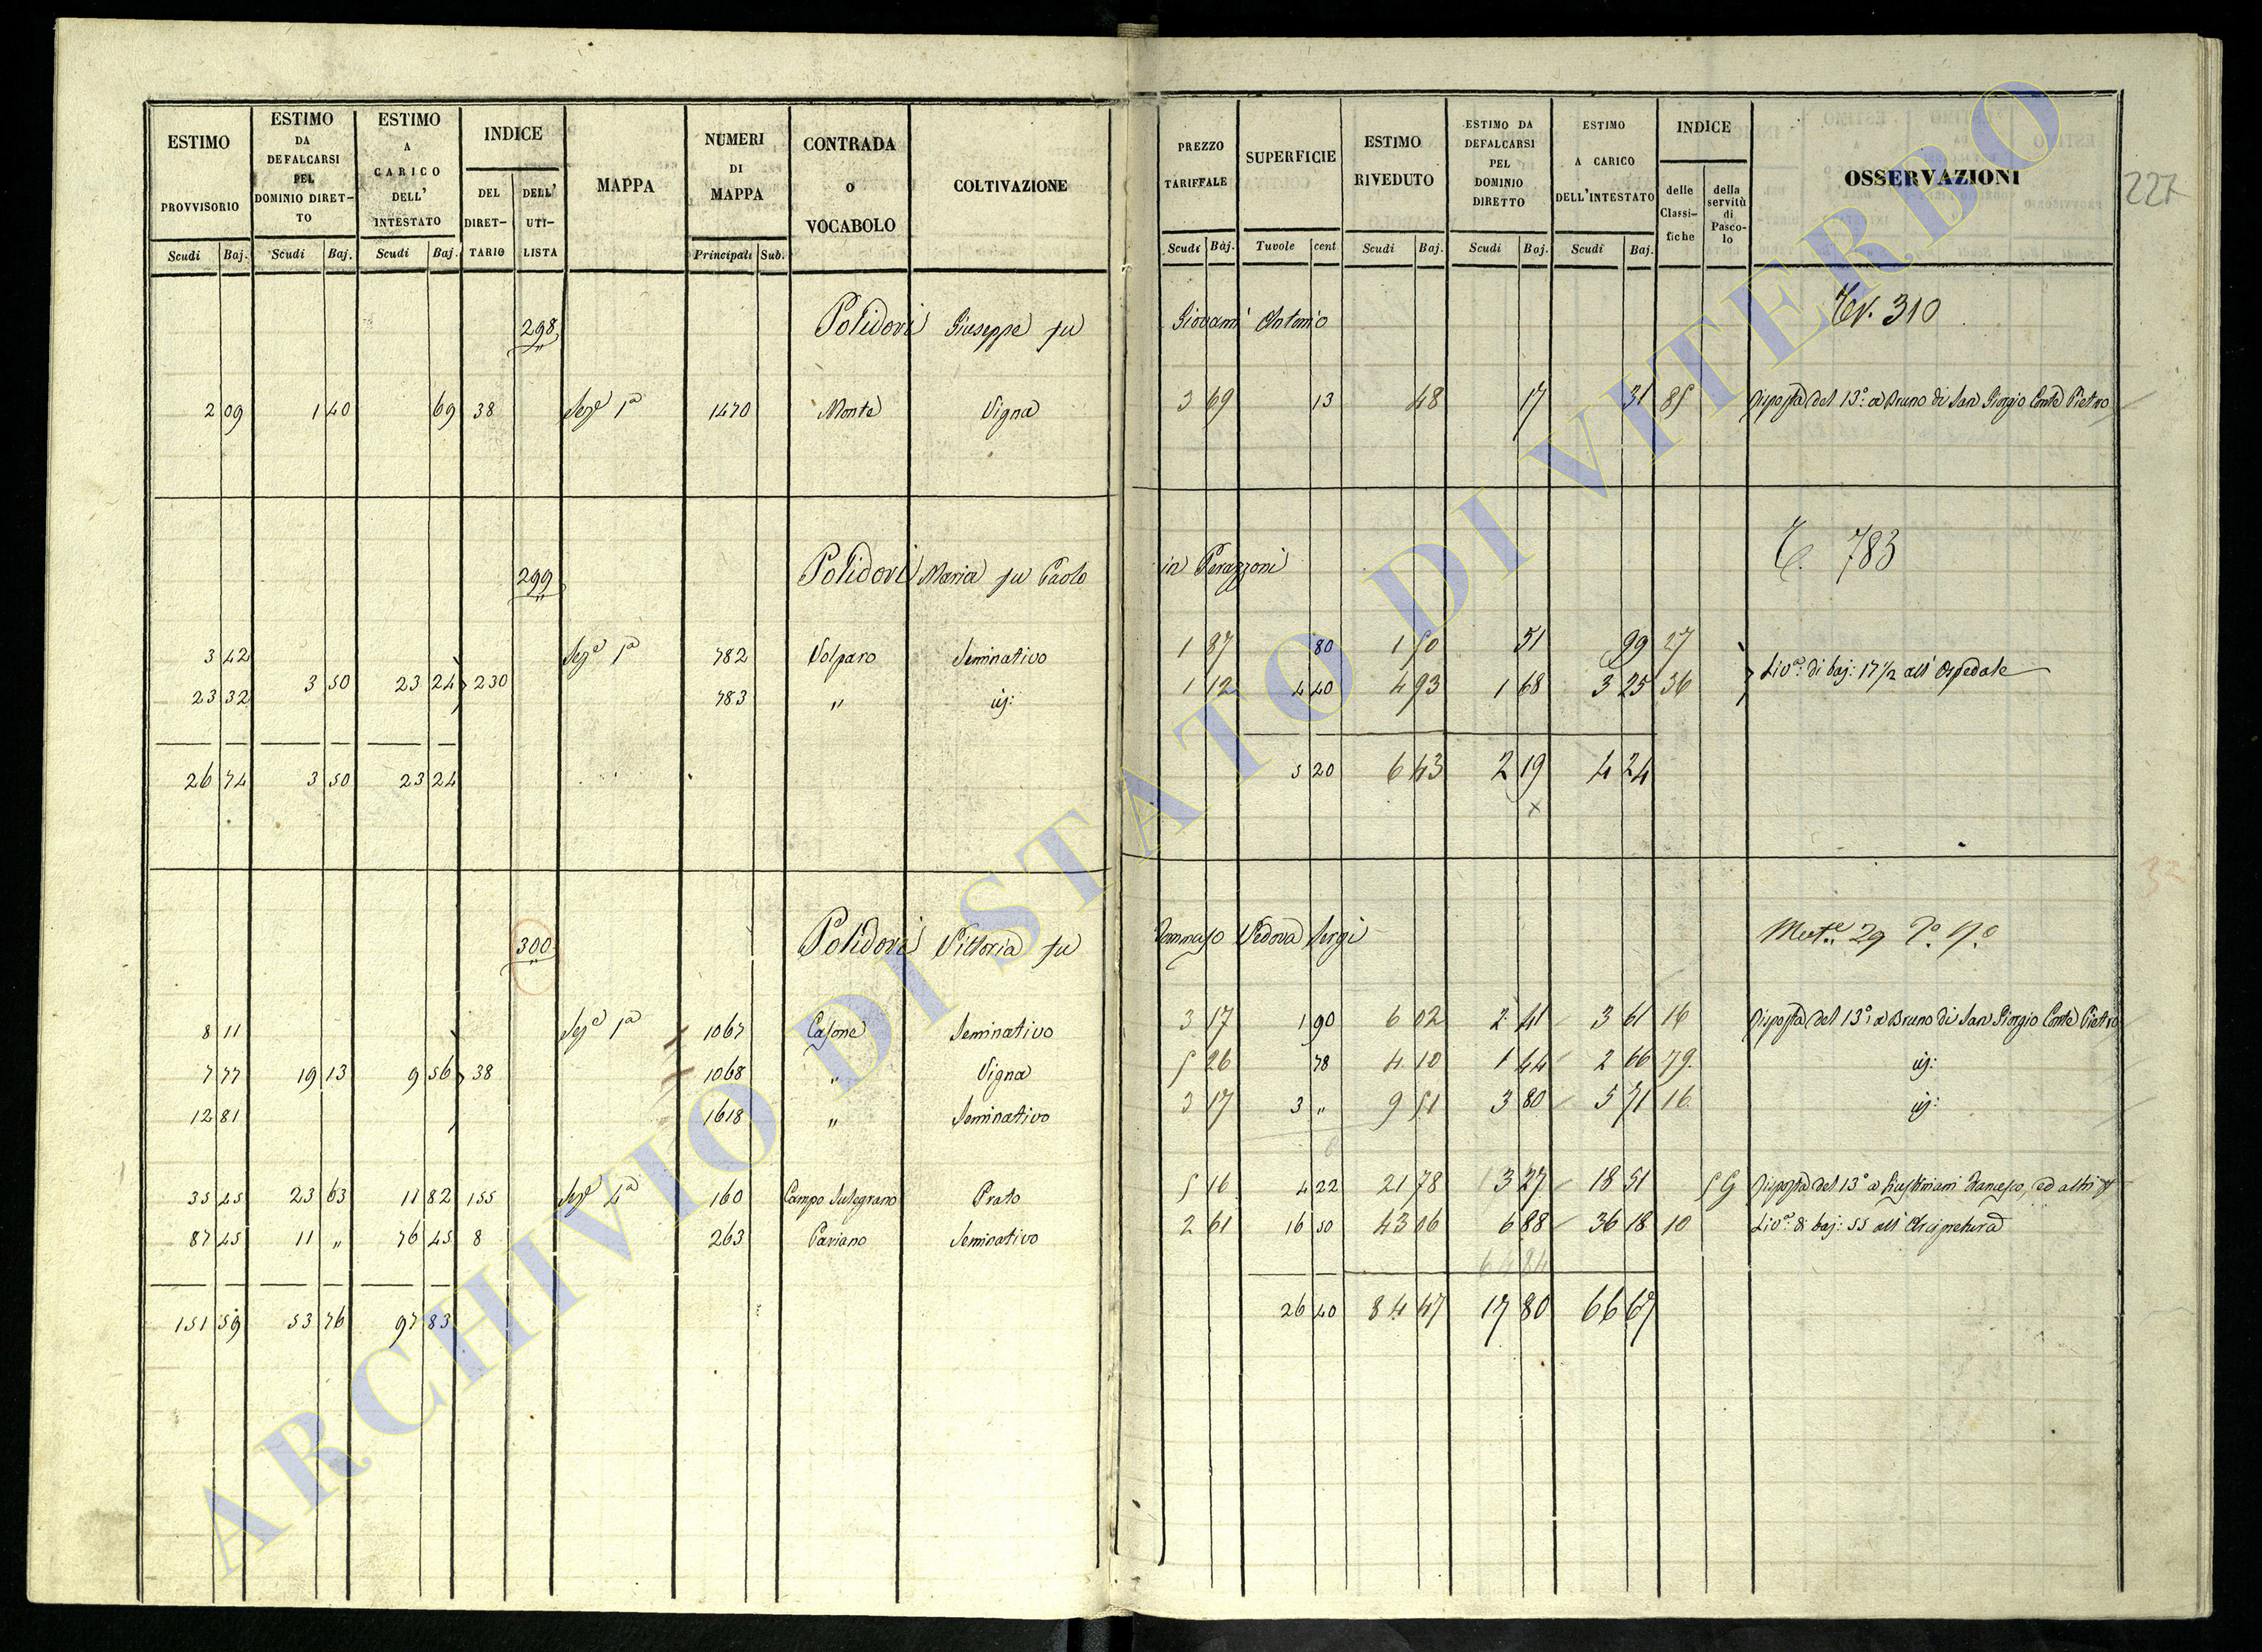 ESTIMO PROVVISORIO Scudi Baj.
ESTIMO DA DEFALCARSI PEL DOMINIO DIRET-TO Scudi Baj.
ESTIMO A CARICO DELL' INTESTATO Scudi Baj.
INDICE DEL DIRET-TARIO DELL' UTI-LISTA
MAPPA
NUMERI DI MAPPA Principali Sub.
CONTRADA O VOCABOLO
COLTIVAZIONE
PREZZO TARIFFALE Scudi Baj.
SUPERFICIE Tuvole cent
ESTIMO RIVEDUTO Scudi Baj.
ESTIMO DA DEFALCARSI PEL DOMINIO DIRETTO Scudi Baj.
ESTIMO A CARICO DELL'INTESTATO Scudi Baj.
INDICE delle Classi-fiche della servitù di Pasco-lo
OSSERVAZIONI
227
298 Polidori Giuseppe fu Giovanni Antonio 310
2 09 1 40 69 38 Seze 1a 1470 Monte Vigna 3 69 13 48 17 31 85 Disposta del 13° a Bruno di San Giorgio Conte Pietro
299 Polidori Maria fu Paolo in Perazzoni 783
3 42 Seze 1a 782 Volparo Seminativo 1 87 80 1 50 51 99 27
3 50 23 24 230 Liv.a di baj: 17 1/2 all' Ospedale
23 32 783 " id: 1 12 4 40 4 93 1 68 3 25 36
26 74 3 50 23 24 5 20 6 43 2 19 4 24
x
32
300 Polidori Vittoria fu Tommaso Vedova Sergi 29
8 11 Seze 1a 1067 Casone Seminativo 3 17 1 90 6 02 2 41 3 61 16 Disposta del 13° a Bruno di San Giorgio Conte Pietro
7 77 19 13 9 56 38 1068 " Vigna 5 26 78 4 10 1 44 2 66 79. id:
12 81 1618 " Seminativo 3 17 3 " 9 51 3 80 5 71 16 id:
35 45 23 63 11 82 155 Seze 4a 160 Campo Prato 5 16 4 22 21 78 3 27 18 51 5 G Disposta del 13° a Giustiniani Francesco, ed altri
87 45 11 " 76 45 8 263 Pariano Seminativo 2 61 16 50 43 06 6 88 36 18 10 Liv.a di baj: 55 all' Arcipretura
151 59 53 76 97 83 26 40 84 47 17 80 66 67
ARCHIVIO DI STATO DI VITERBO